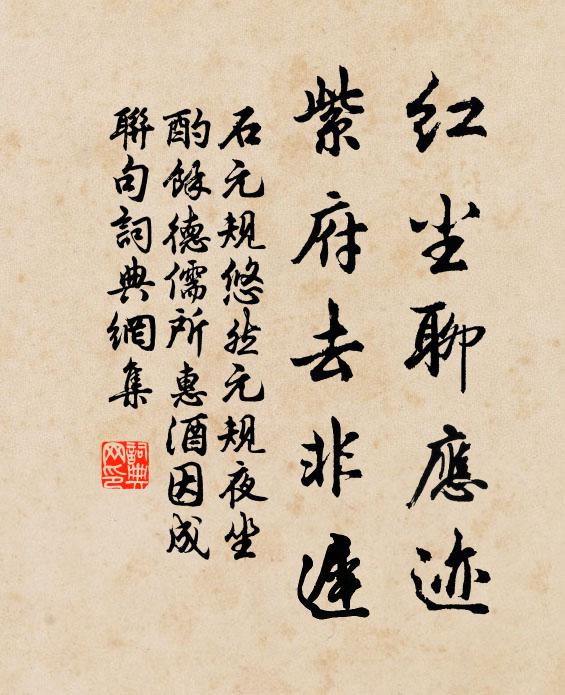 红尘聊應迹
紫府去非遲
石元规悠然元规夜坐
酌馀德儒所惠酒因成
聯句詞典網集
詞典网印